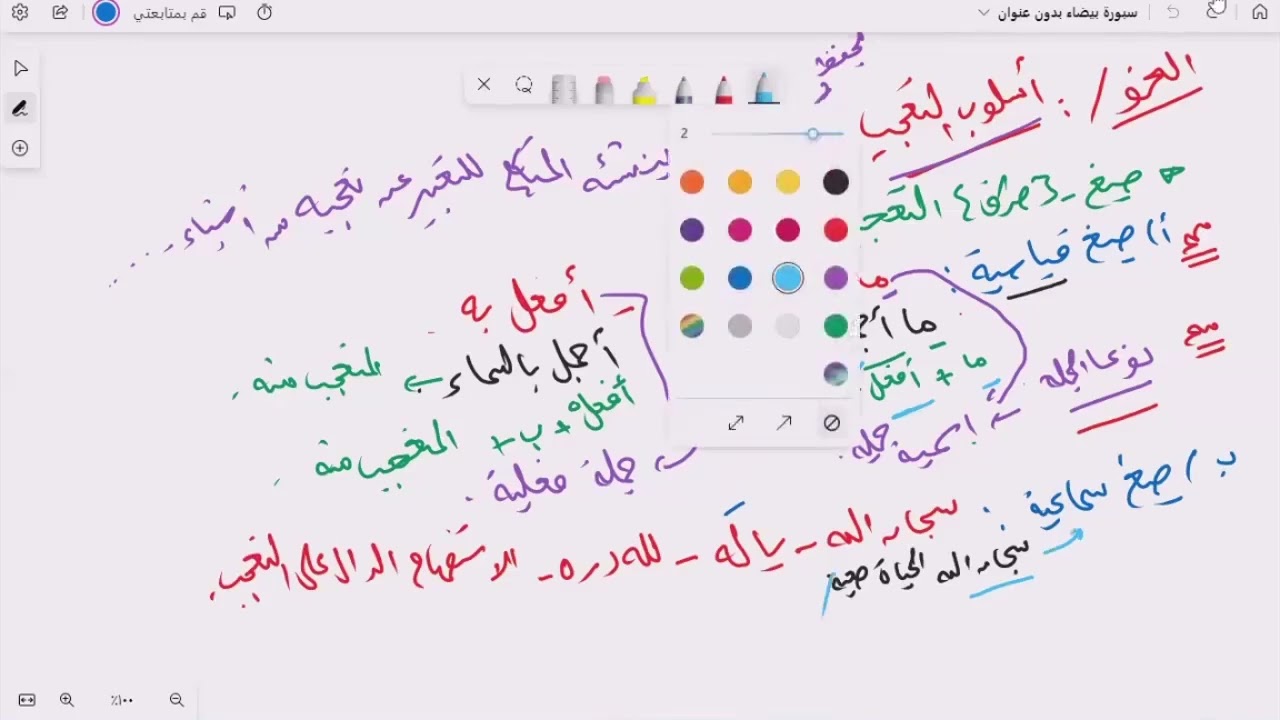 قم بمتابعتي
سبورة بيضاء بدون عنوان
يحفظ
النحو / : أسلوب التعجب
ينشئه المتكلم للتعبير عن تعجبه من أشياء ....
2
صيغ - {طرق} التعجـ
مهم
أ) صيغ قياسية :
مـا
أفعل به
ما أجـ
أجمل بالسماء ← المتعجب منه .
مهم
نوعها الجملة
ما + أفعل
أفعل + ب + المتعجب منه .
← اسمية جملة .
← جملة فعلية .
ب) صيغ سماعية :
سبحان الله - يا له - لله دره - الاستفهام الدال على التعجب .
سبحان الله الحياة صعبة
٪١٠٠